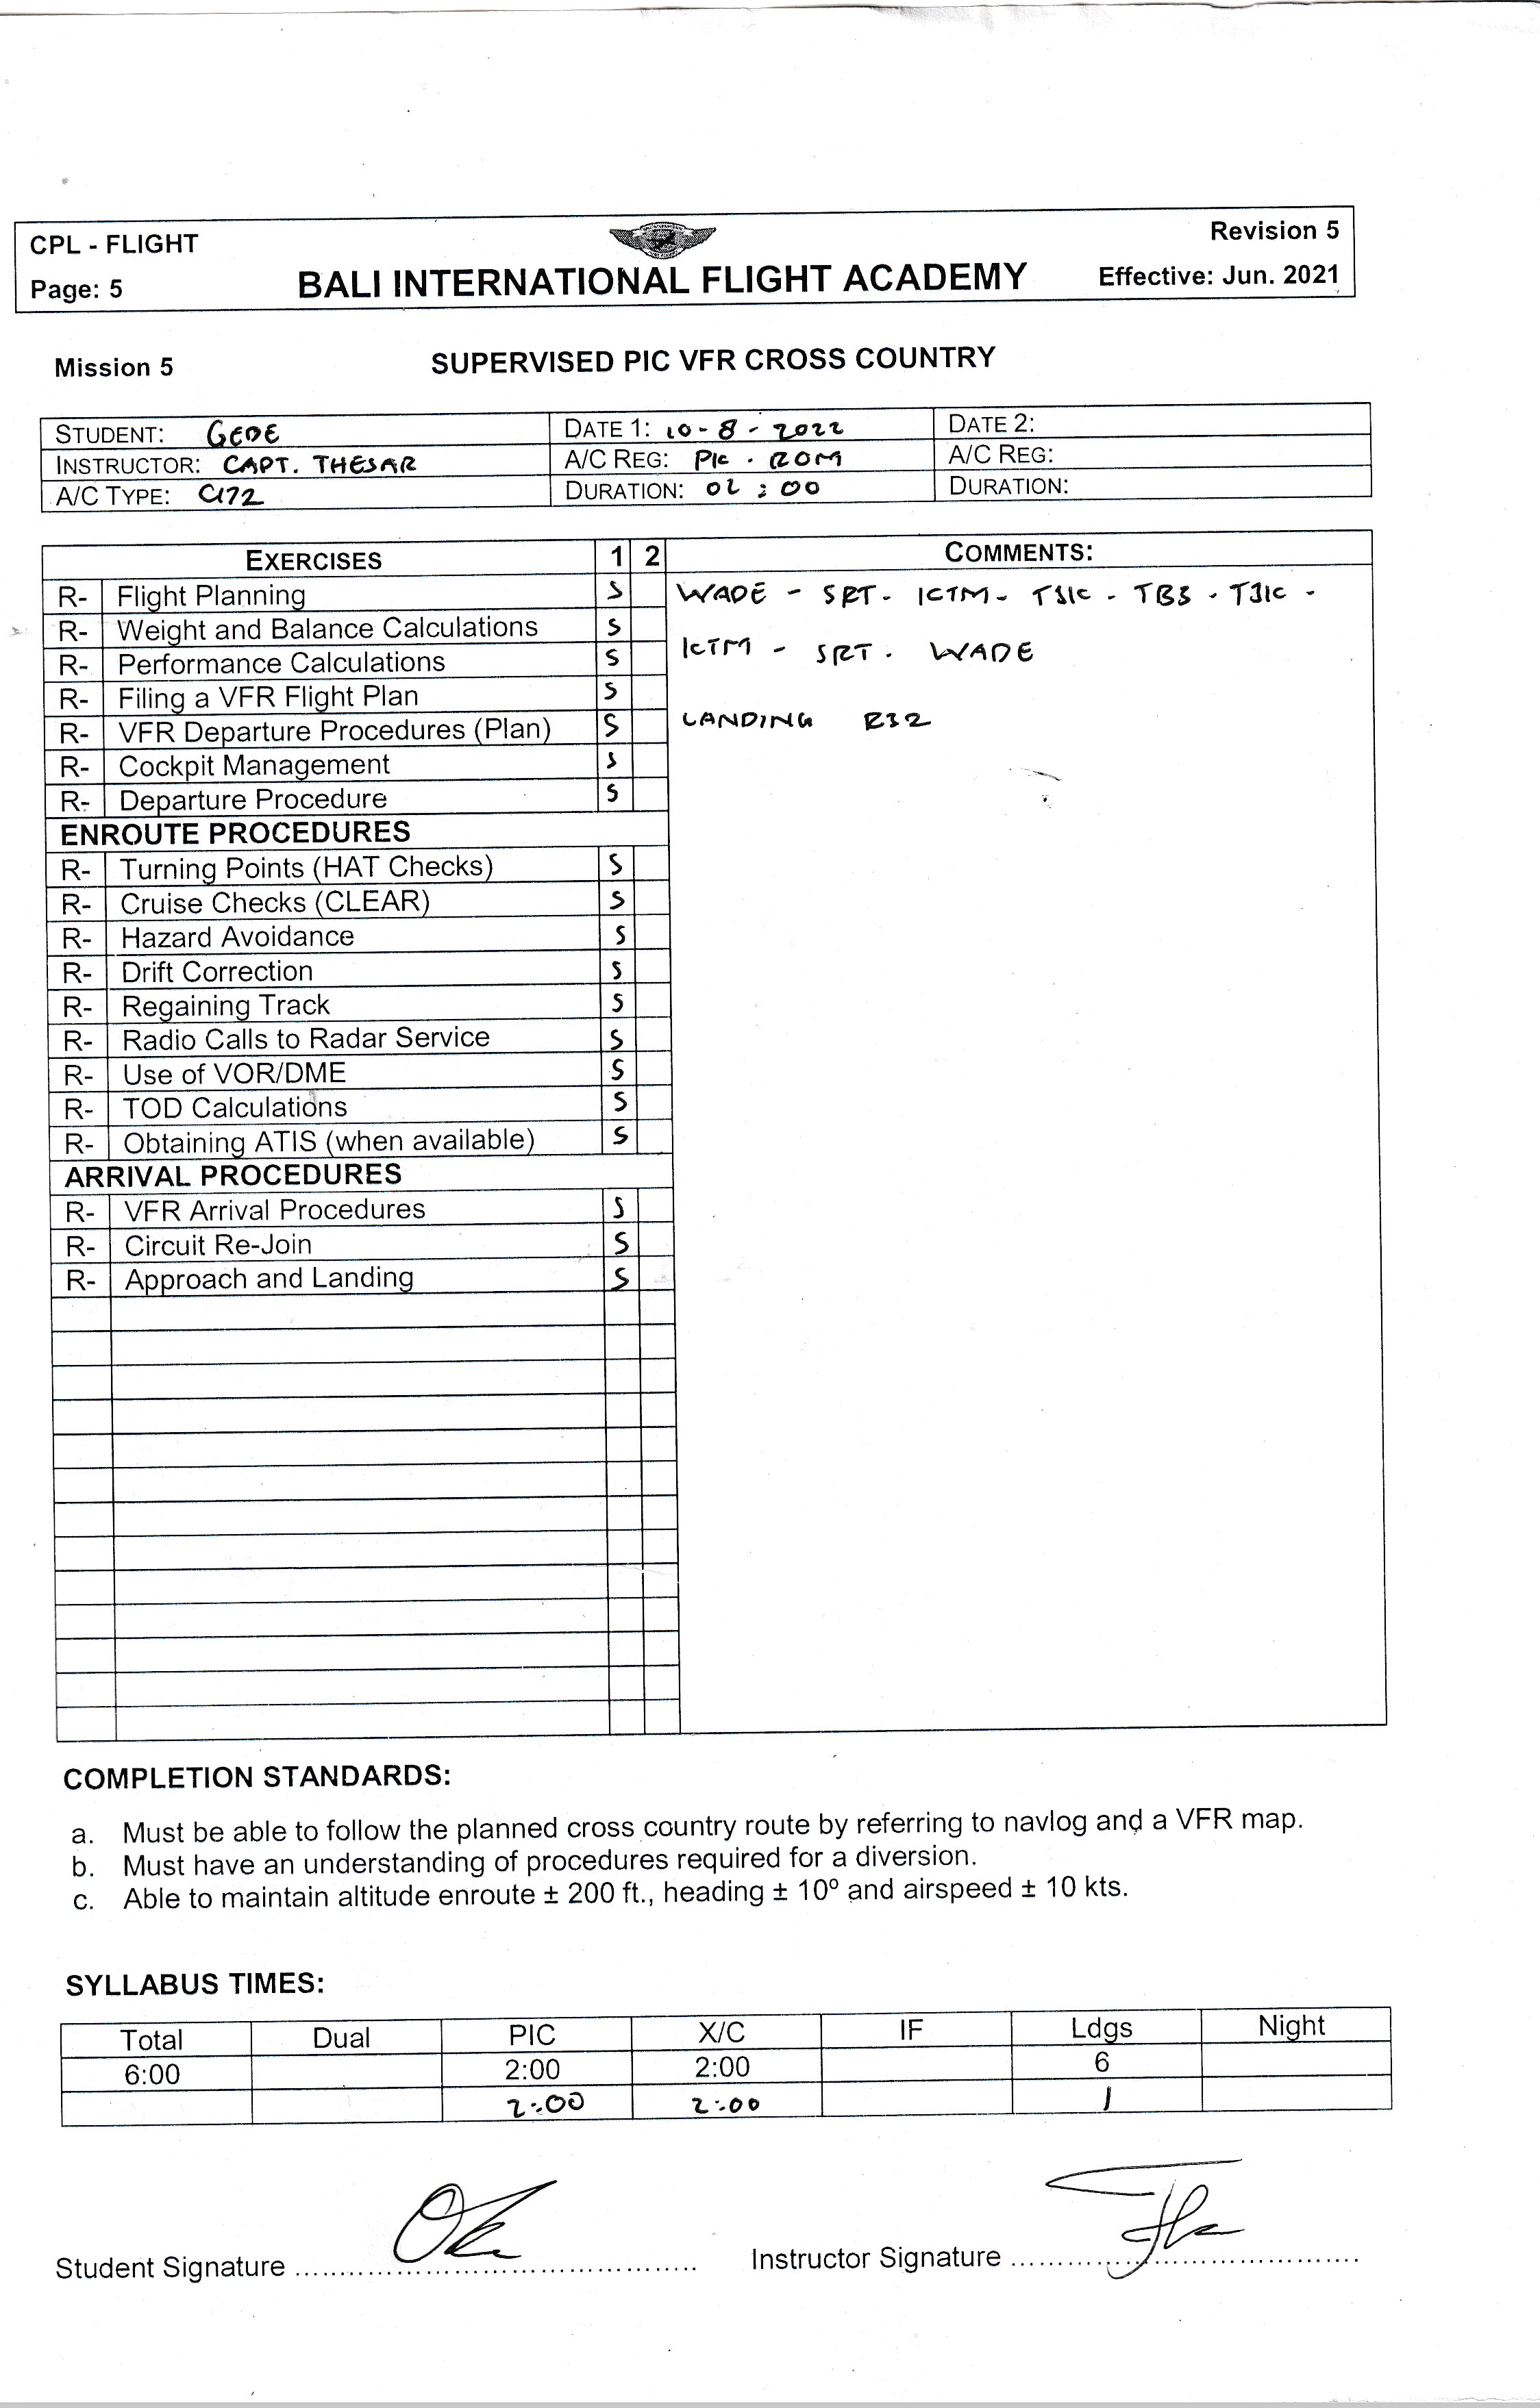 CPL - FLIGHT
Revision 5
Page: 5
BALI INTERNATIONAL FLIGHT ACADEMY
Effective: Jun. 2021
Mission 5
SUPERVISED PIC VFR CROSS COUNTRY
STUDENT: GEDE
DATE 1: 10-8-2022
DATE 2:
INSTRUCTOR: CAPT. THESAR
A/C REG: PK-ROM
A/C REG:
A/C TYPE: C172
DURATION: 02:00
DURATION:
EXERCISES 1 2
COMMENTS:
R- Flight Planning S
WADE - SRT - KTM - TSK - TBS - TSK -
R- Weight and Balance Calculations S
KTM - SRT - WADE
R- Performance Calculations S
R- Filing a VFR Flight Plan S
R- VFR Departure Procedures (Plan) S
LANDING R32
R- Cockpit Management S
R- Departure Procedure S
ENROUTE PROCEDURES
R- Turning Points (HAT Checks) S
R- Cruise Checks (CLEAR) S
R- Hazard Avoidance S
R- Drift Correction S
R- Regaining Track S
R- Radio Calls to Radar Service S
R- Use of VOR/DME S
R- TOD Calculations S
R- Obtaining ATIS (when available) S
ARRIVAL PROCEDURES
R- VFR Arrival Procedures S
R- Circuit Re-Join S
R- Approach and Landing S
COMPLETION STANDARDS:
a. Must be able to follow the planned cross country route by referring to navlog and a VFR map.
b. Must have an understanding of procedures required for a diversion.
c. Able to maintain altitude enroute ± 200 ft., heading ± 10º and airspeed ± 10 kts.
SYLLABUS TIMES:
Total Dual PIC X/C IF Ldgs Night
6:00 2:00 2:00 6
2:00 2:00 1
Student Signature ............................................
Instructor Signature ............................................